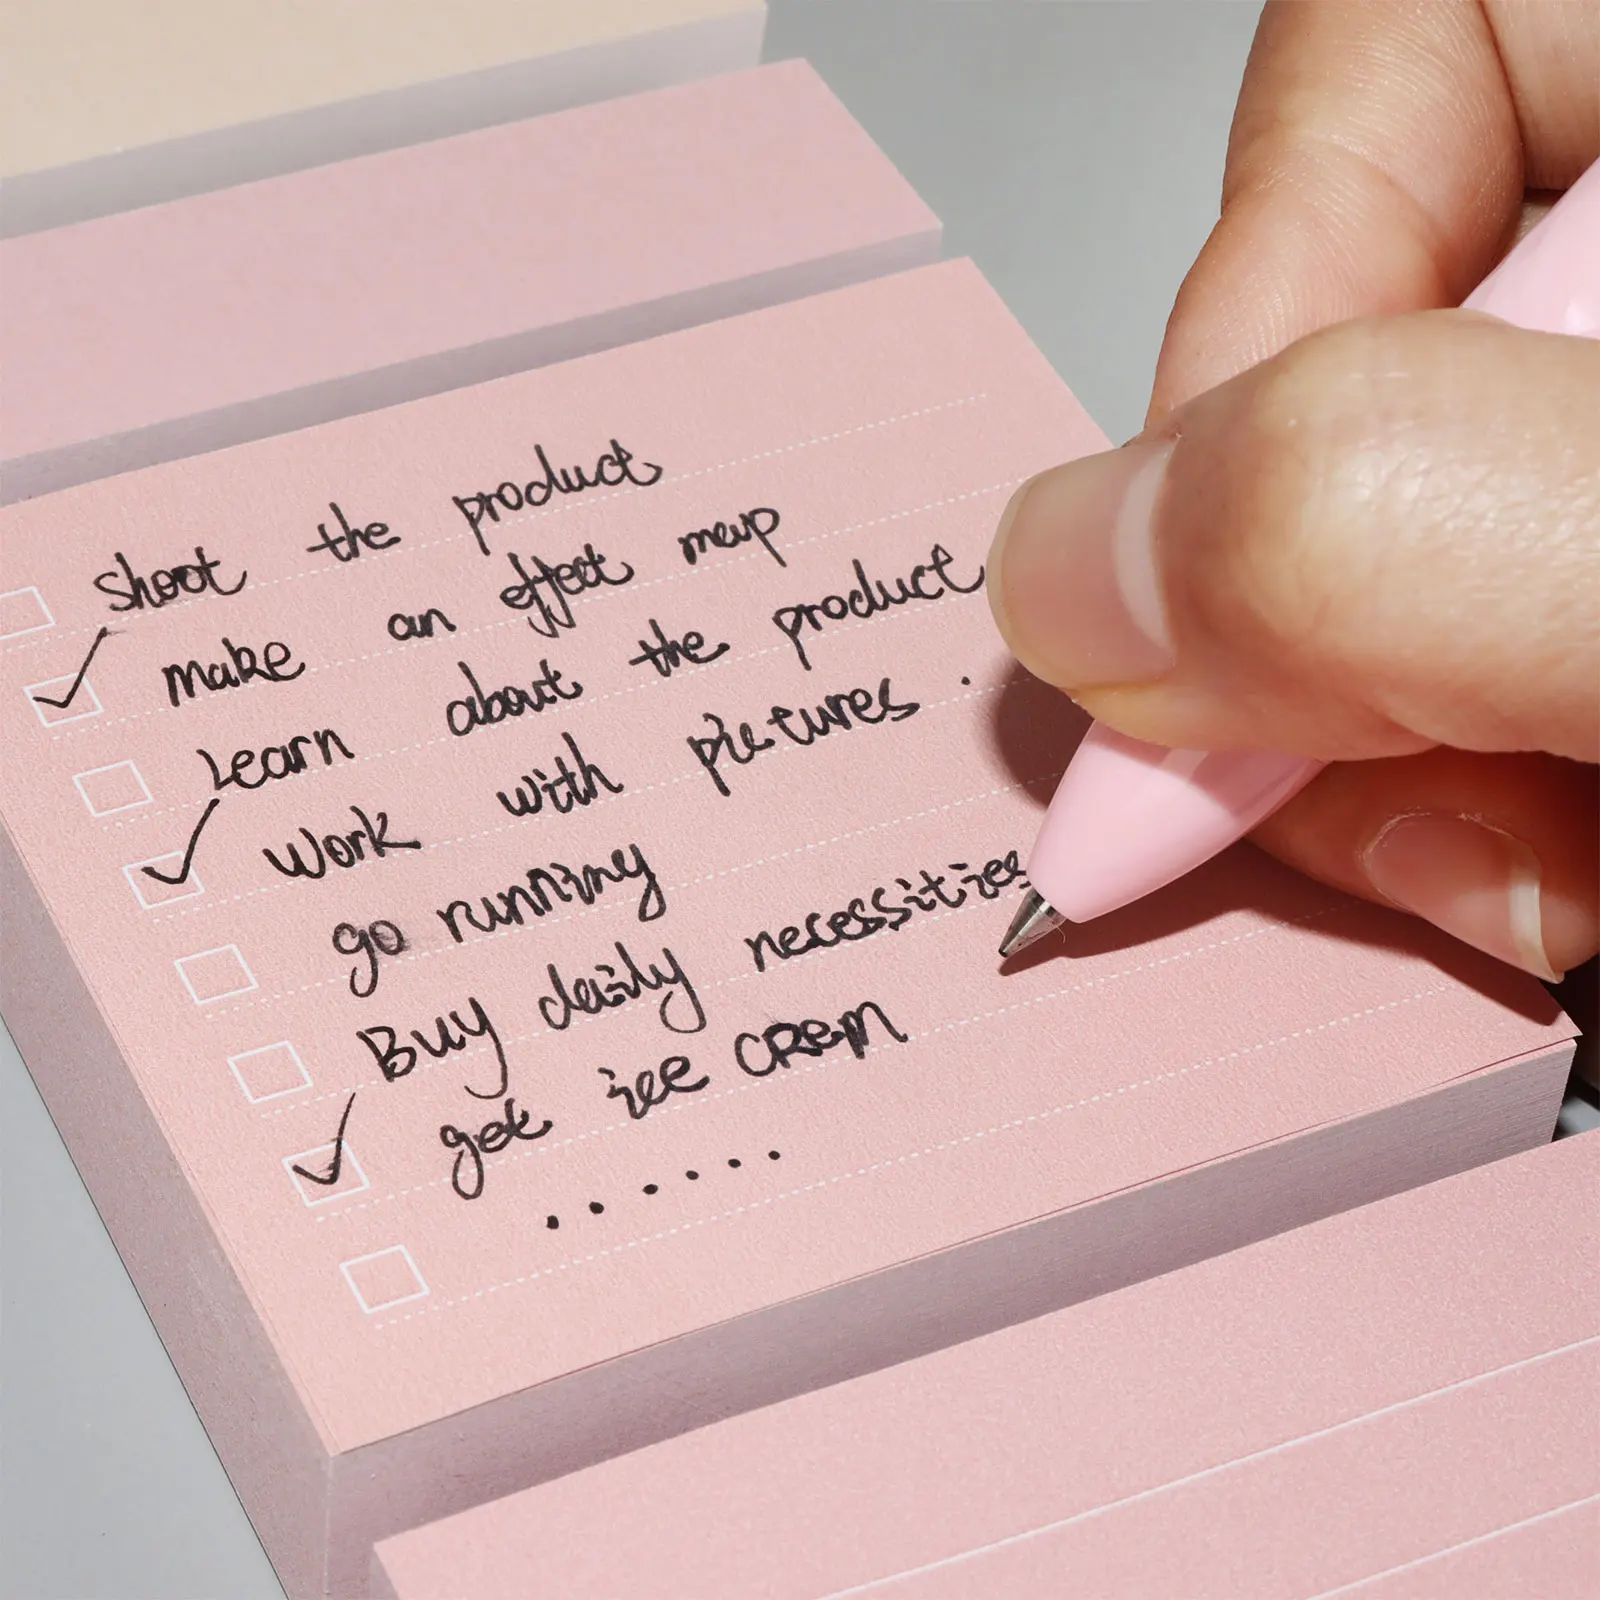 shoot the product
make an effect
Learn about the product
work with pictures .
go running
Buy daily necessities
get ice crem
......